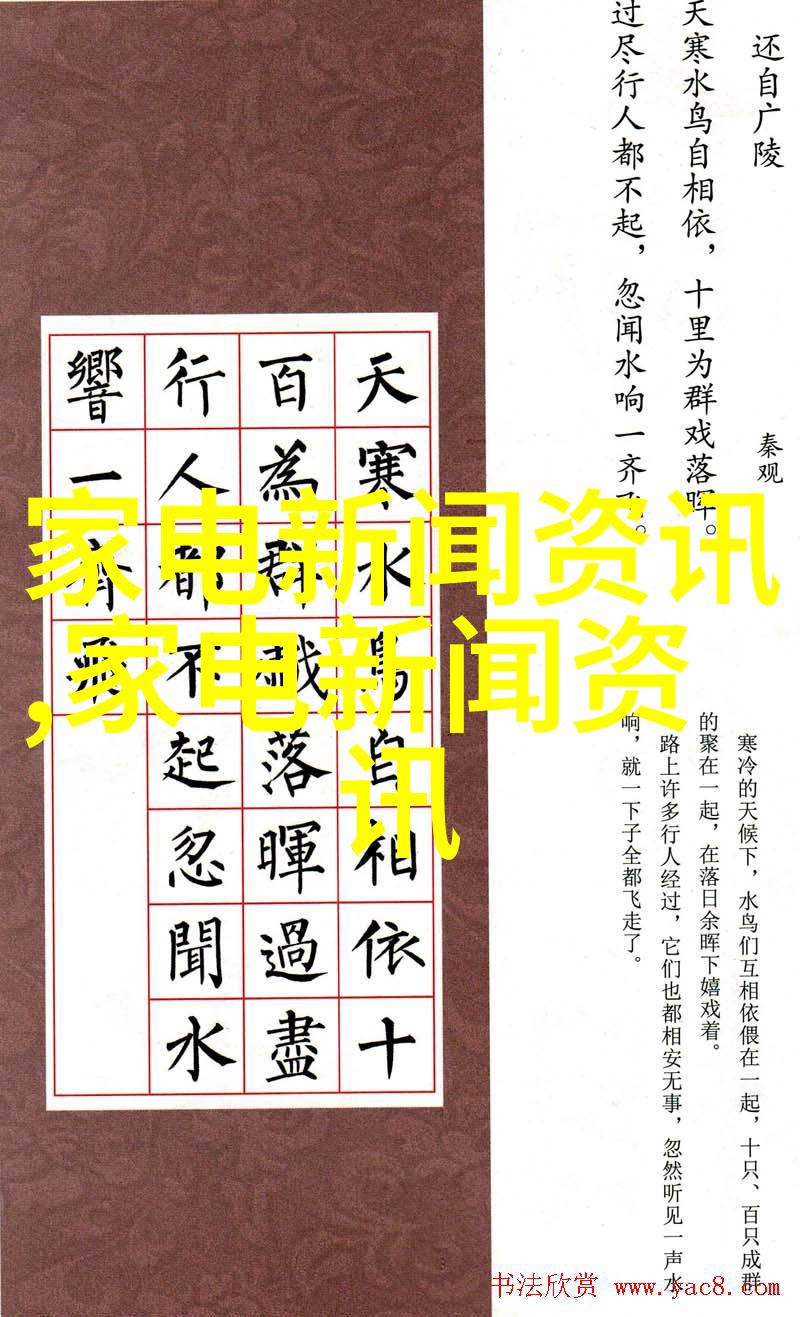 还自广陵
秦观
天寒水鸟自相依，十里为群戏落晖。
过尽行人都不起，忽闻水响一齐飞。
天寒水鳥自相依十
百為群戲落暉過盡
行人都不起忽聞水
響一齊飛
家电新闻资讯
,家电新闻资
讯
寒冷的天候下，水鸟们互相依偎在一起，十只、百只成群
的聚在一起，在落日余晖下嬉戏着。
路上许多行人经过，它们也都相安无事，忽然听见一声水
响，就一下子全都飞走了。
书法欣赏 www.yac8.com